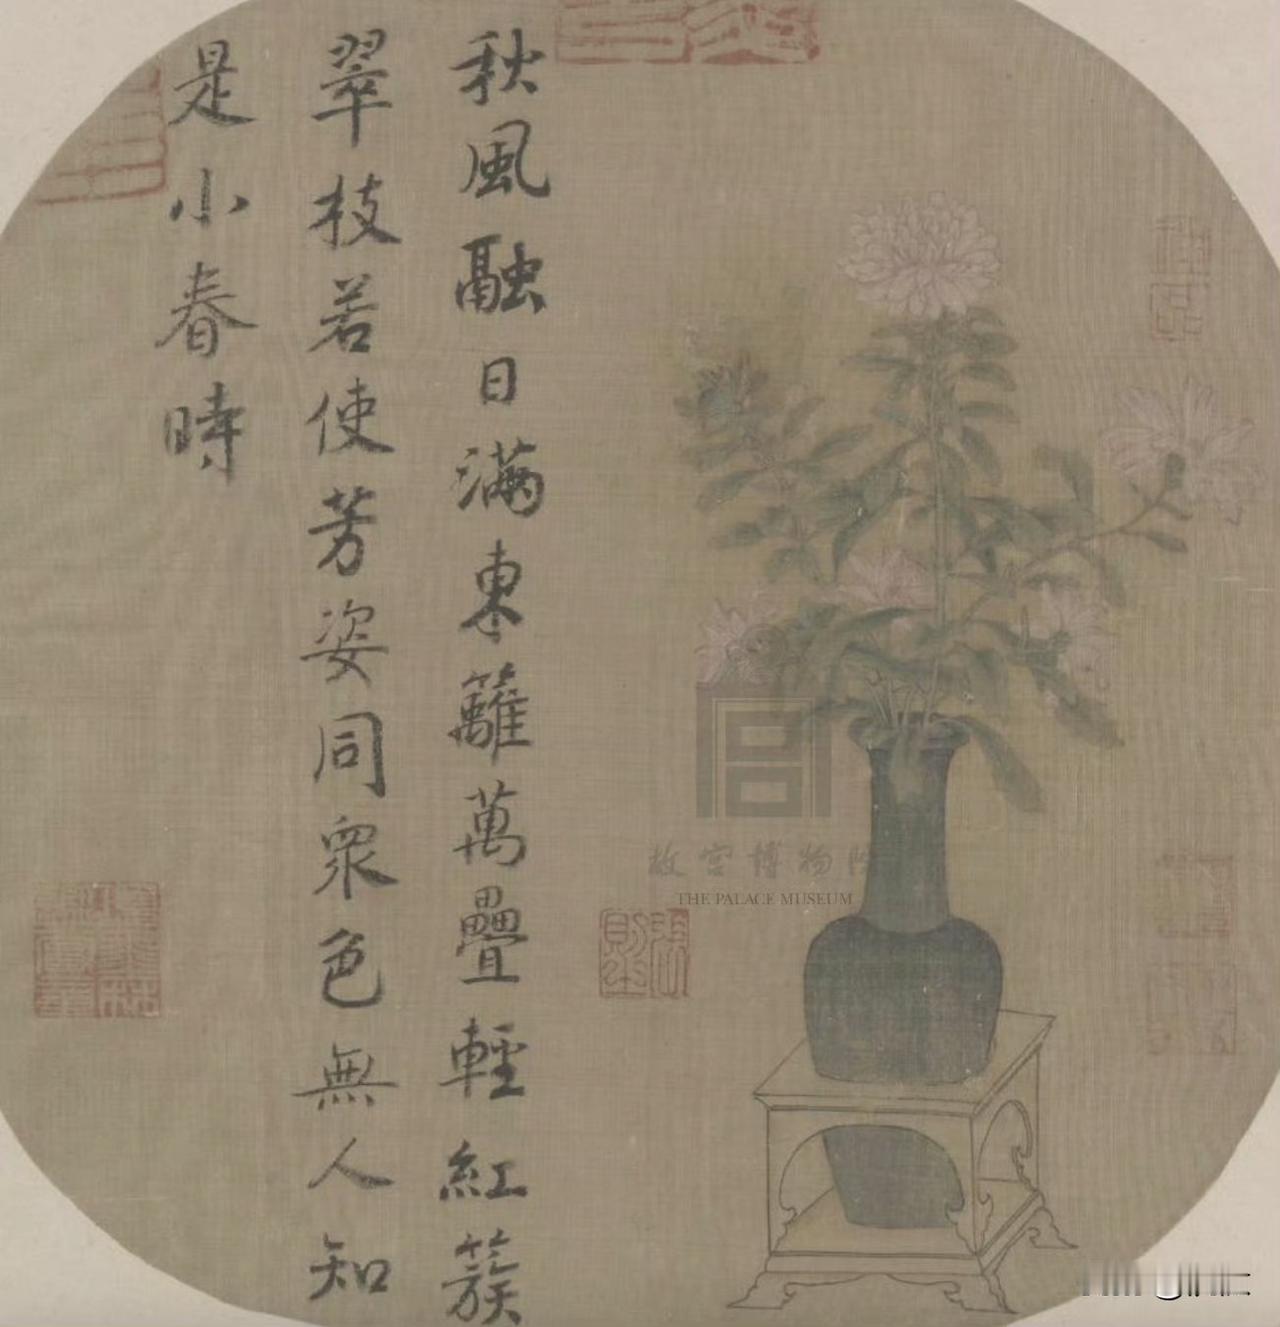 秋風融日滿東籬萬疊輕紅簇
翠枝若使芳姿同衆色無人知
是小春時
故宫博物院
THE PALACE MUSEUM